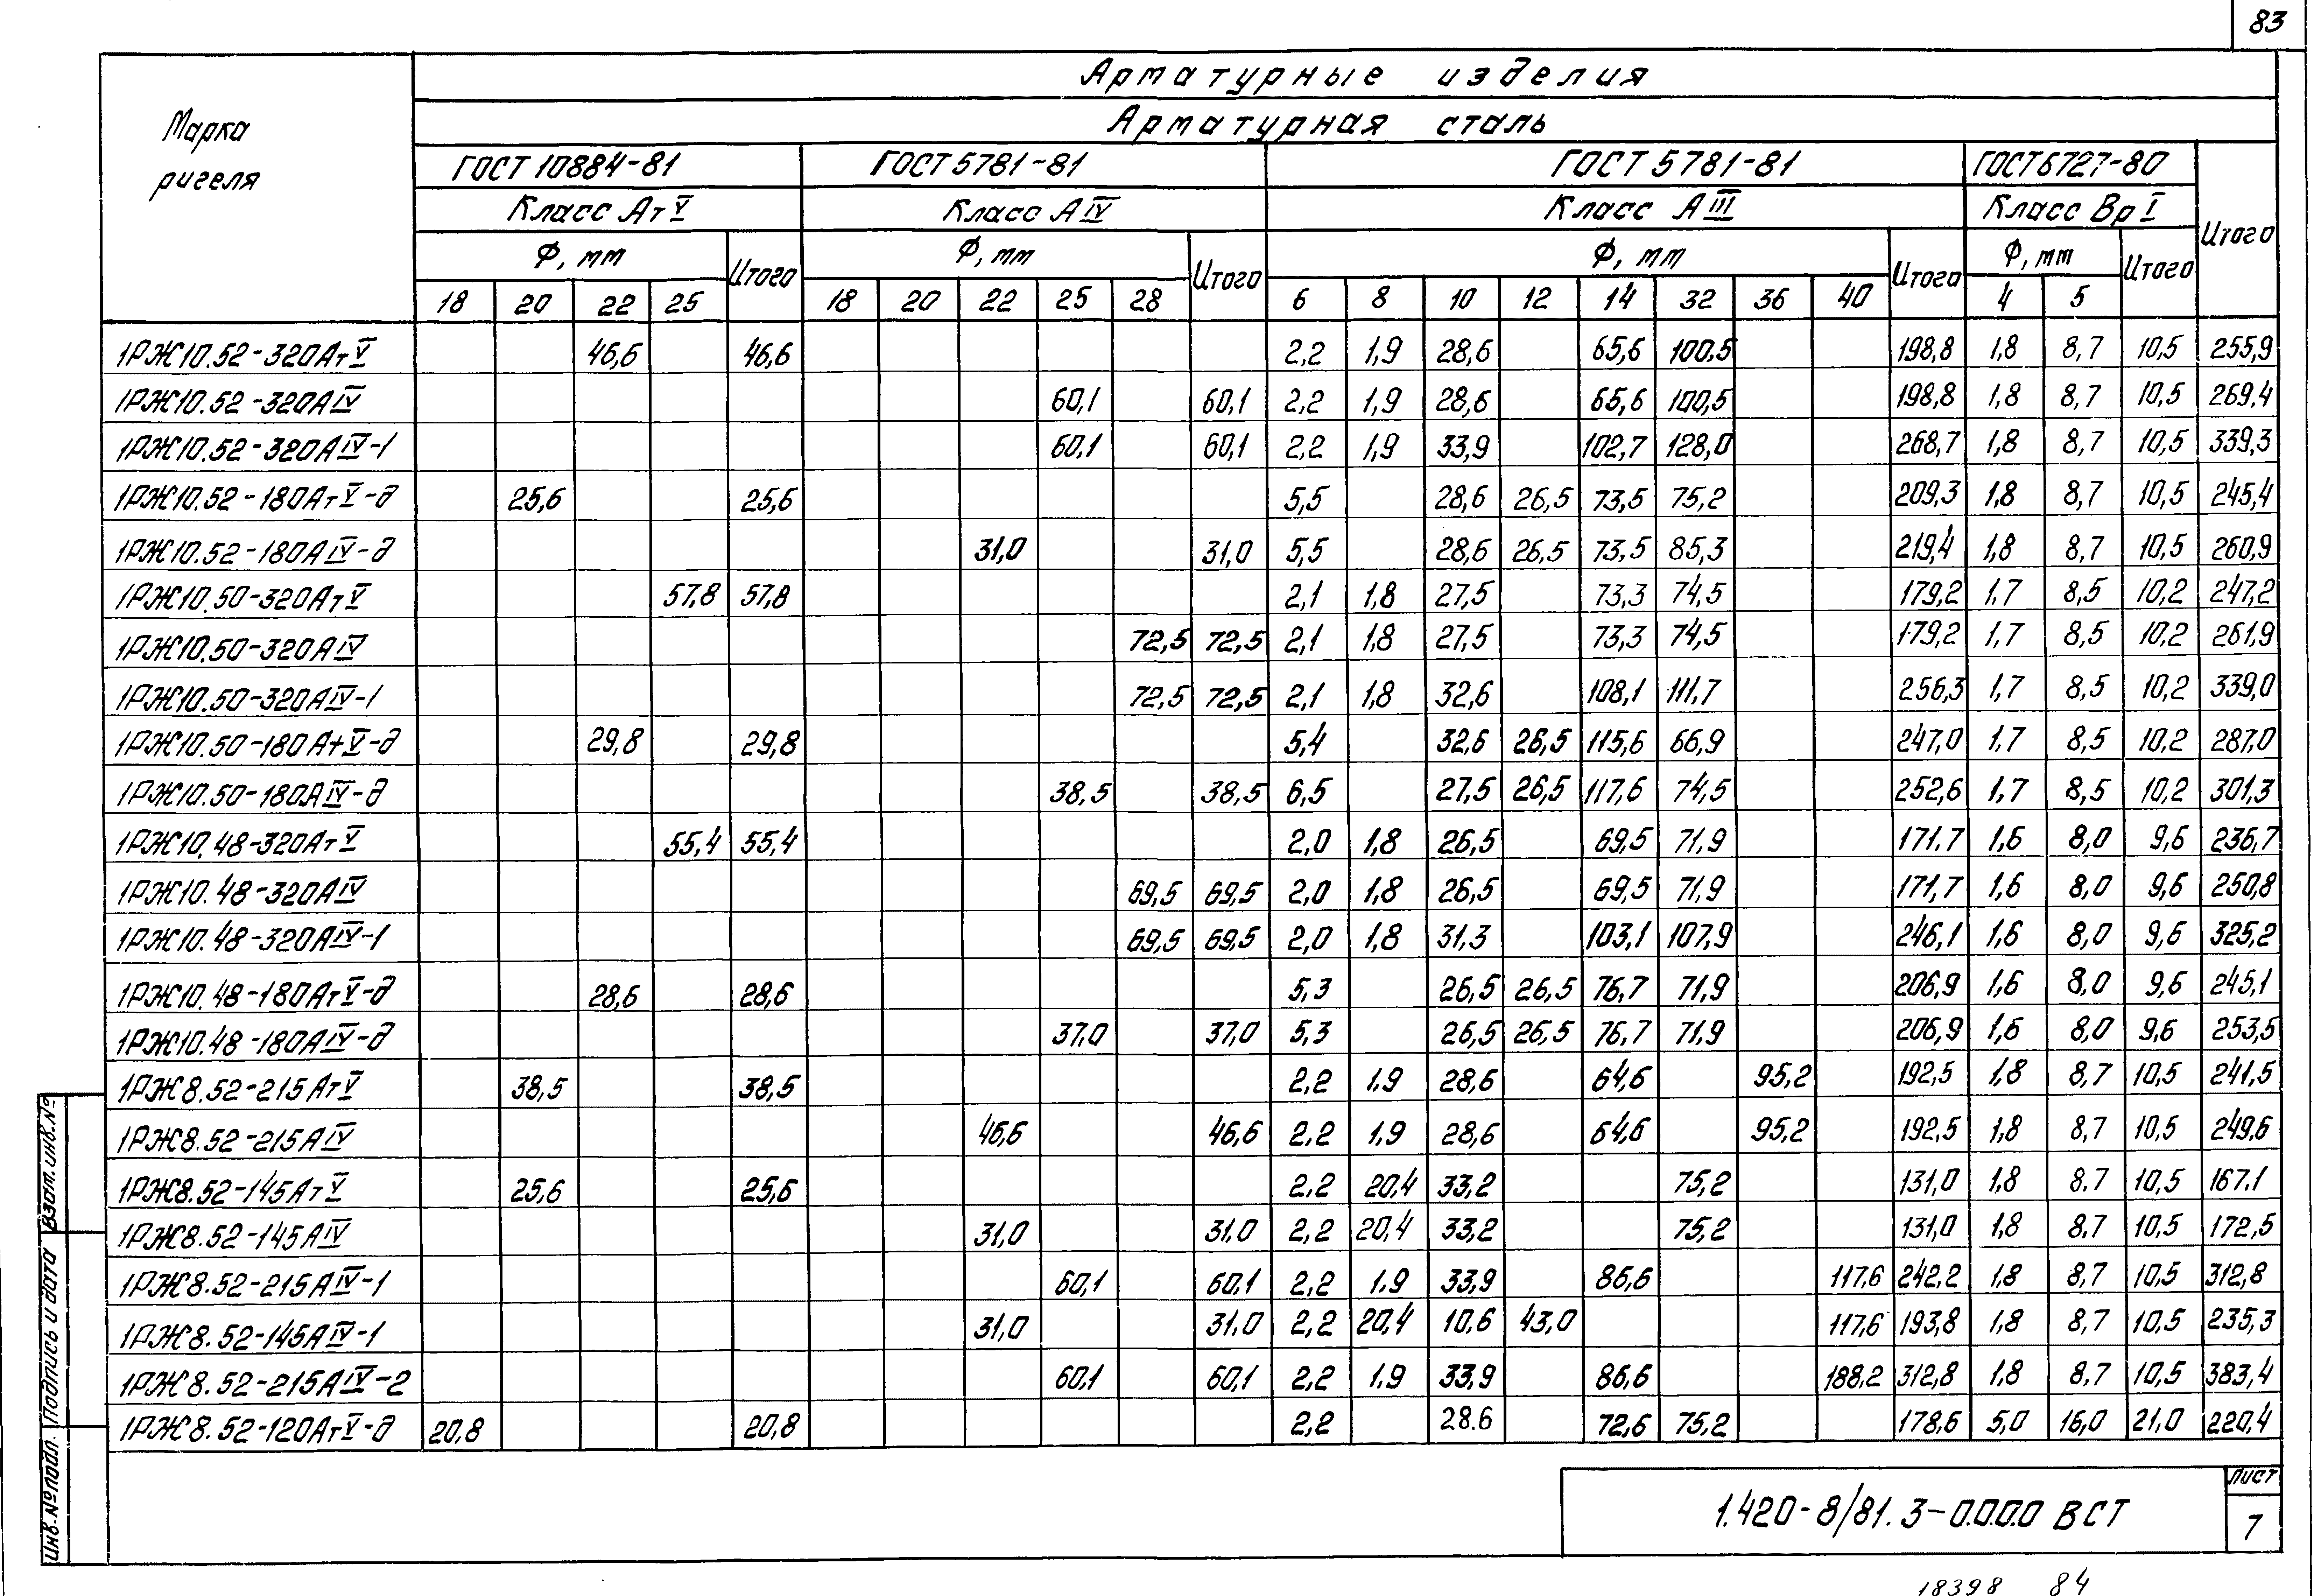 83
Арматурные изделия
Арматурная сталь
Марка ригеля
ГОСТ 10884-81 ГОСТ 5781-81 ГОСТ 5781-81 ГОСТ 6727-80 Итого
Класс Ат V Класс А IV Класс А III Класс Вр I
Ф, мм Итого Ф, мм Итого Ф, мм Итого Ф, мм Итого
18 20 22 25 18 20 22 25 28 6 8 10 12 14 32 36 40 4 5
1РЖ10.52-320АтV 46,6 46,6 2,2 1,9 28,6 65,6 100,5 198,8 1,8 8,7 10,5 255,9
1РЖ10.52-320АIV 60,1 60,1 2,2 1,9 28,6 65,6 100,5 198,8 1,8 8,7 10,5 269,4
1РЖ10.52-320АIV-1 60,1 60,1 2,2 1,9 33,9 102,7 128,0 268,7 1,8 8,7 10,5 339,3
1РЖ10.52-180АтV-д 25,6 25,6 5,5 28,6 26,5 73,5 75,2 209,3 1,8 8,7 10,5 245,4
1РЖ10.52-180АIV-д 31,0 31,0 5,5 28,6 26,5 73,5 85,3 219,4 1,8 8,7 10,5 260,9
1РЖ10.50-320АтV 57,8 57,8 2,1 1,8 27,5 73,3 74,5 179,2 1,7 8,5 10,2 247,2
1РЖ10.50-320АIV 72,5 72,5 2,1 1,8 27,5 73,3 74,5 179,2 1,7 8,5 10,2 261,9
1РЖ10.50-320АIV-1 72,5 72,5 2,1 1,8 32,6 108,1 111,7 256,3 1,7 8,5 10,2 339,0
1РЖ10.50-180АтV-д 29,8 29,8 5,4 32,6 26,5 115,6 66,9 247,0 1,7 8,5 10,2 287,0
1РЖ10.50-180АIV-д 38,5 38,5 6,5 27,5 26,5 117,6 74,5 252,6 1,7 8,5 10,2 301,3
1РЖ10.48-320АтV 55,4 55,4 2,0 1,8 26,5 69,5 71,9 171,7 1,6 8,0 9,6 236,7
1РЖ10.48-320АIV 69,5 69,5 2,0 1,8 26,5 69,5 71,9 171,7 1,6 8,0 9,6 250,8
1РЖ10.48-320АIV-1 69,5 69,5 2,0 1,8 31,3 103,1 107,9 246,1 1,6 8,0 9,6 325,2
1РЖ10.48-180АтV-д 28,6 28,6 5,3 26,5 26,5 76,7 71,9 206,9 1,6 8,0 9,6 245,1
1РЖ10.48-180АIV-д 37,0 37,0 5,3 26,5 26,5 76,7 71,9 206,9 1,6 8,0 9,6 253,5
1РЖ8.52-215АтV 38,5 38,5 2,2 1,9 28,6 64,6 95,2 192,5 1,8 8,7 10,5 241,5
1РЖ8.52-215АIV 46,6 46,6 2,2 1,9 28,6 64,6 95,2 192,5 1,8 8,7 10,5 249,6
1РЖ8.52-145АтV 25,6 25,6 2,2 20,4 33,2 75,2 131,0 1,8 8,7 10,5 167,1
1РЖ8.52-145АIV 31,0 31,0 2,2 20,4 33,2 75,2 131,0 1,8 8,7 10,5 172,5
1РЖ8.52-215АIV-1 60,1 60,1 2,2 1,9 33,9 86,6 117,6 242,2 1,8 8,7 10,5 312,8
1РЖ8.52-145АIV-1 31,0 31,0 2,2 20,4 10,6 43,0 117,6 193,8 1,8 8,7 10,5 235,3
1РЖ8.52-215АIV-2 60,1 60,1 2,2 1,9 33,9 86,6 188,2 312,8 1,8 8,7 10,5 383,4
1РЖ8.52-120АтV-д 20,8 20,8 2,2 28.6 72,6 75,2 178,6 5,0 16,0 21,0 220,4
Взам. инв. №
Подпись и дата
Инв. № подл.
1.420-8/81.3-0.0.0.0 ВСТ
Лист
7
18398 84